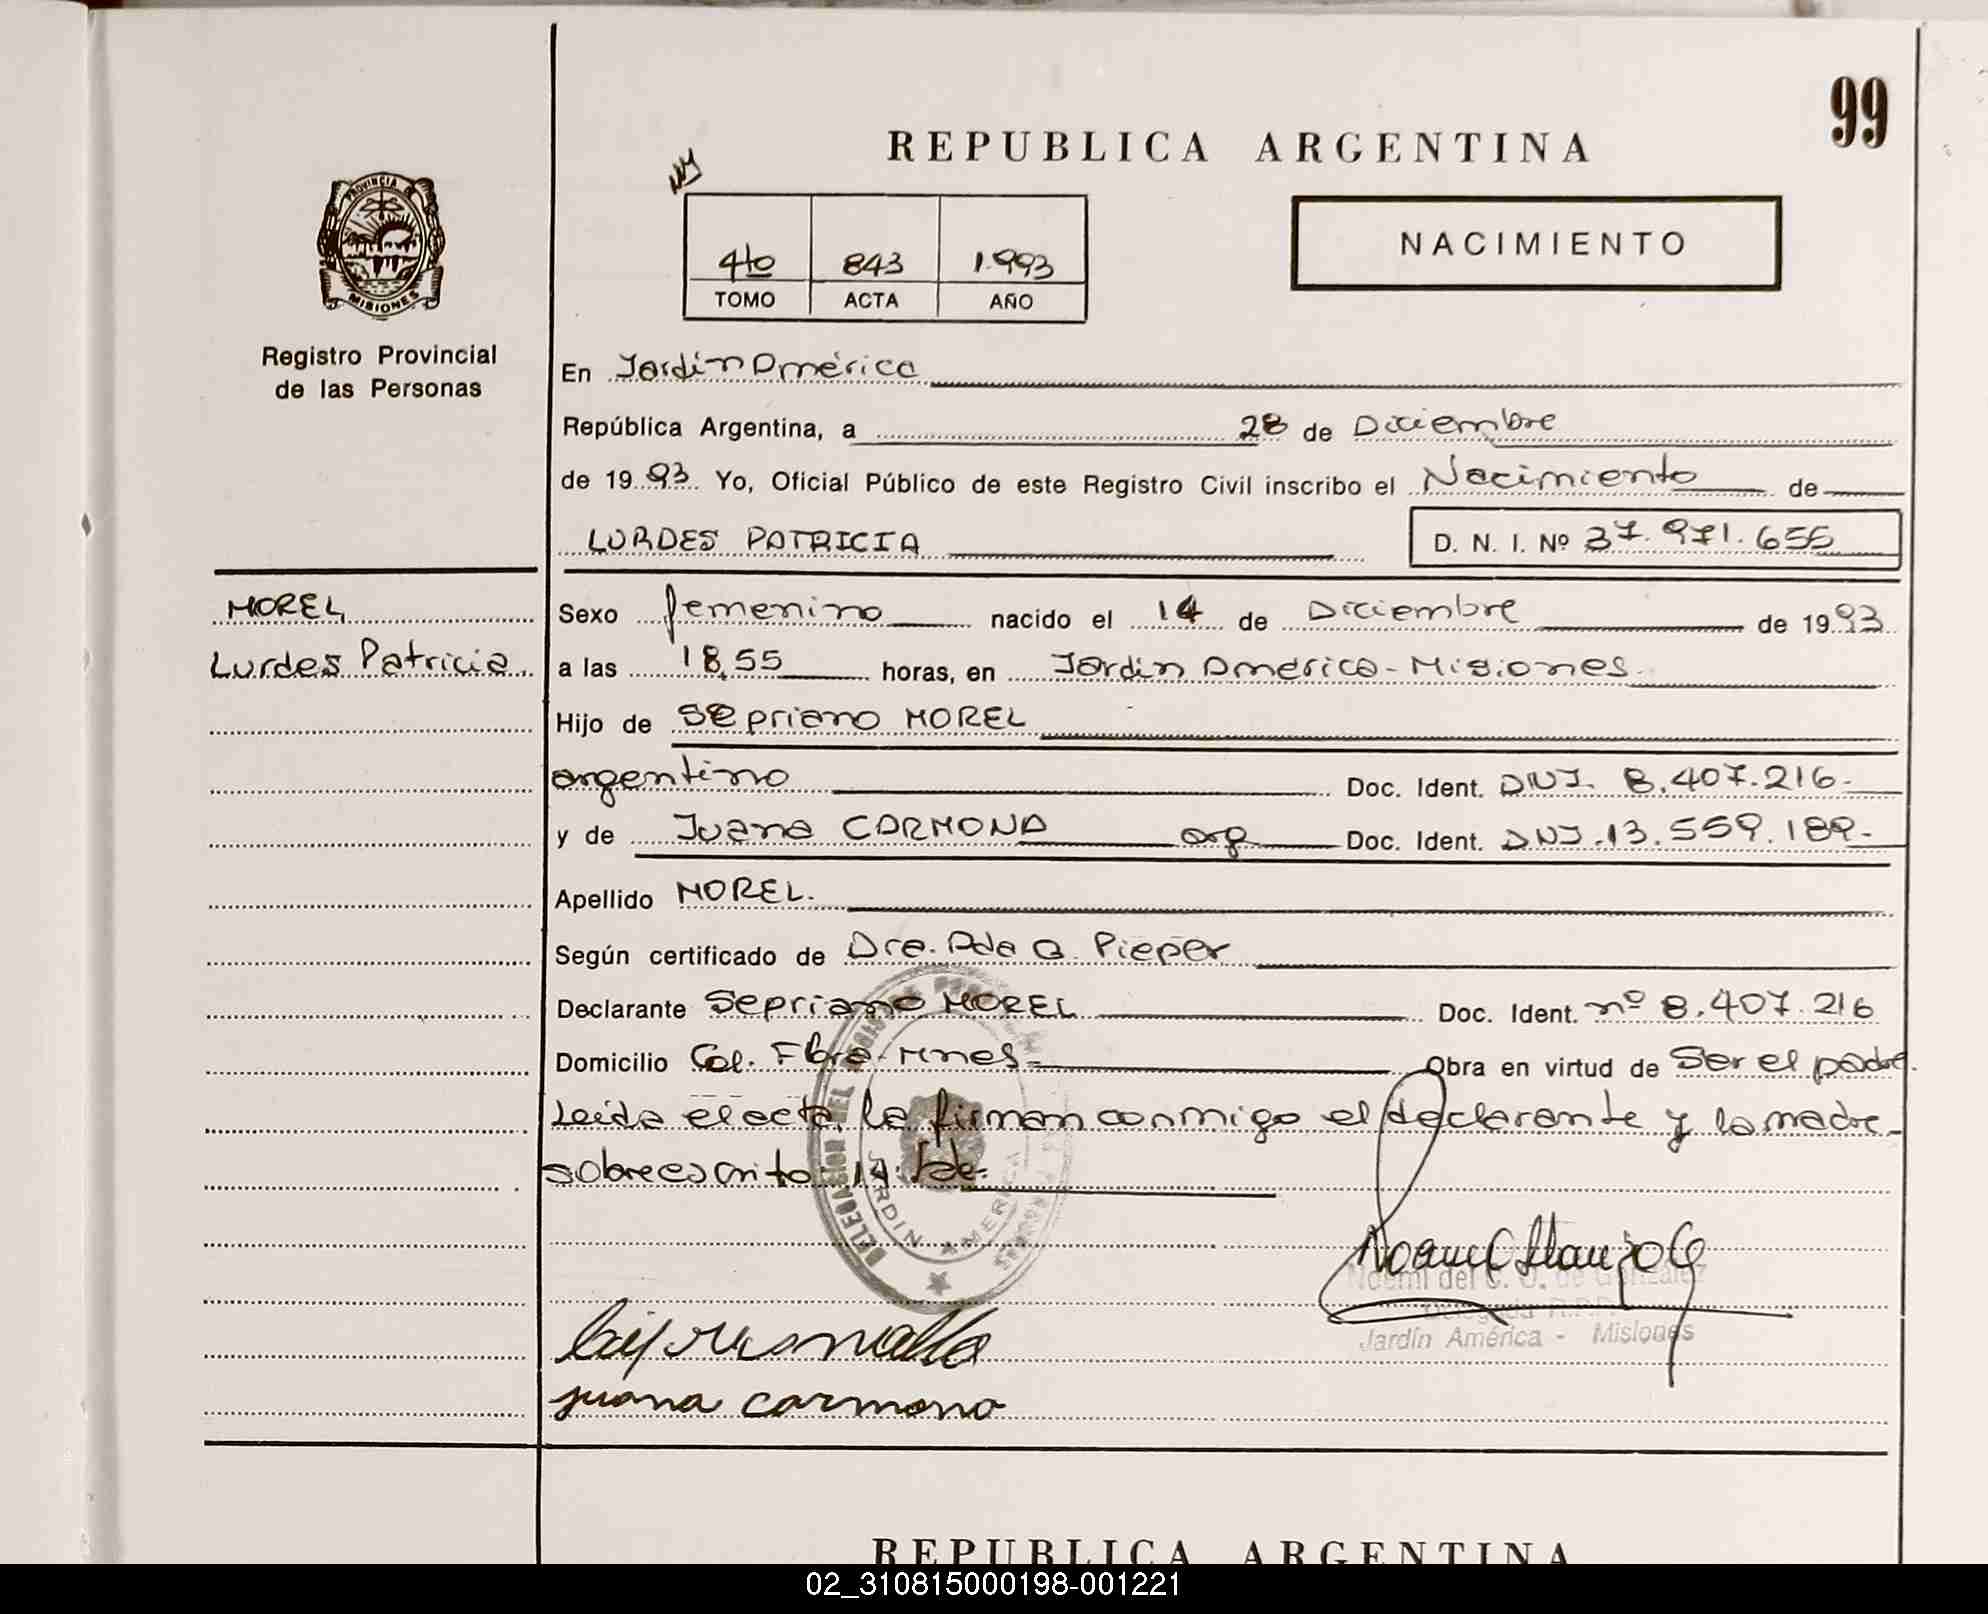 99
REPUBLICA ARGENTINA
PROVINCIA DE
MISIONES
Registro Provincial
de las Personas
4to 843 1.993
TOMO ACTA AÑO
NACIMIENTO
En Jardín América
República Argentina, a 28 de Diciembre
de 19 93 Yo, Oficial Público de este Registro Civil inscribo el Nacimiento de
LURDES PATRICIA D. N. I. Nº 37.971.655
MOREL
Lurdes Patricia
Sexo femenino nacido el 14 de Diciembre de 19 93
a las 18,55 horas, en Jardín América - Misiones
Hijo de Sepriano MOREL
argentino Doc. Ident. DNI. 8.407.216-
y de Juana CARMONA arg Doc. Ident. DNI.13.559.189-
Apellido MOREL.
Según certificado de Dra. Ada G. Pieper
Declarante Sepriano MOREL Doc. Ident. nº 8.407.216
Domicilio Col. Flora-Mnes- Obra en virtud de Ser el padre
Leida el acta, la firman conmigo el declarante y la madre-
sobreescrito 14:
DELEGACION DEL REGISTRO
JARDIN AMERICA
Noemi del C. O. de Gonzalez
Delegada R.P.P.
Jardín América - Misiones
juana carmona
REPUBLICA ARGENTINA
02_310815000198-001221